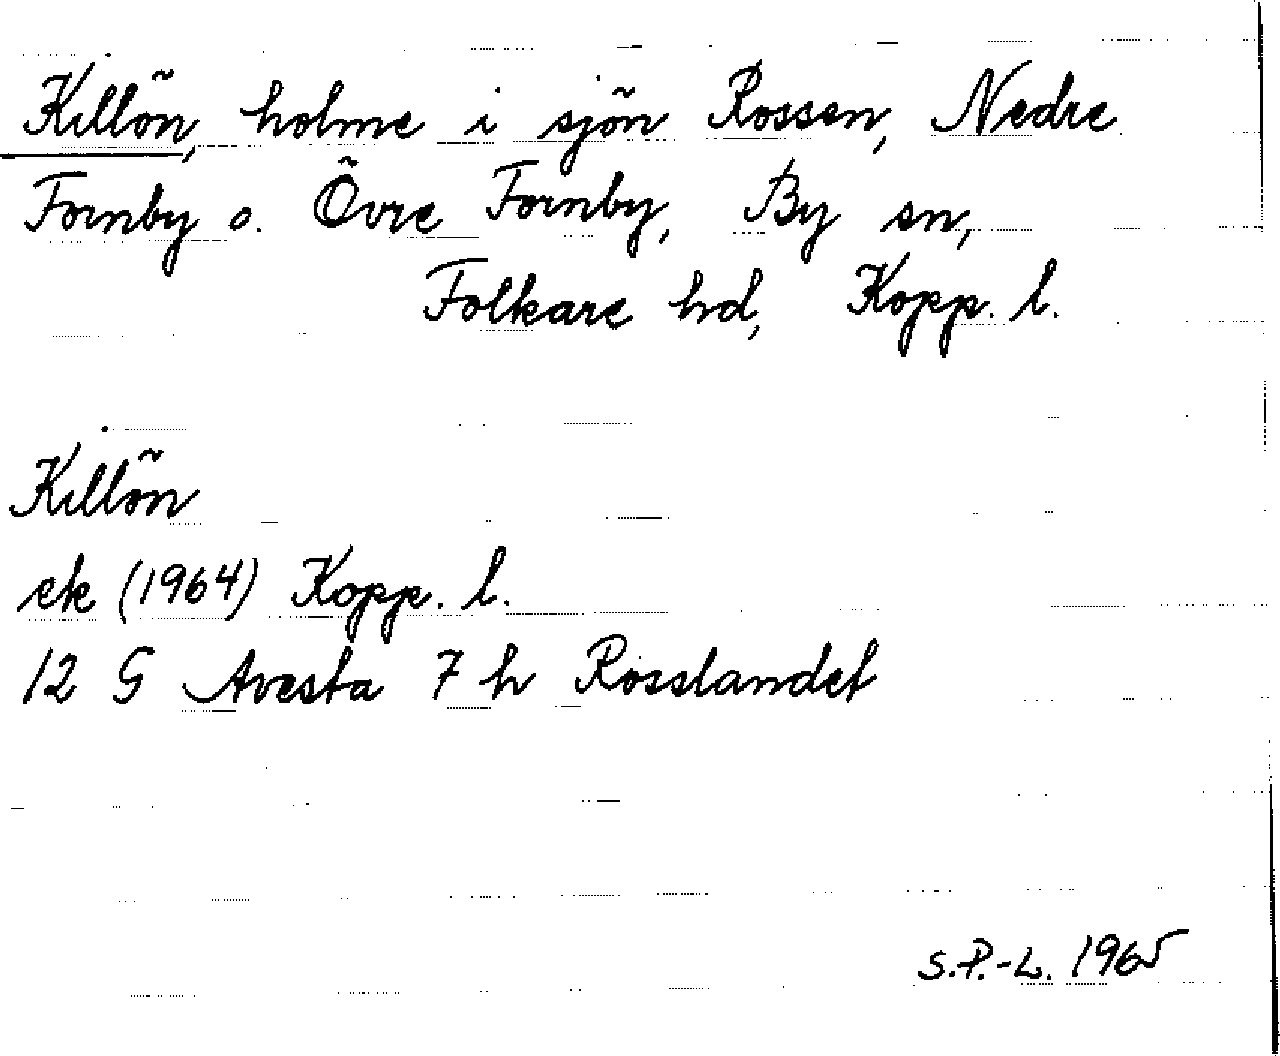 Killön, holme i sjön Rossen, Nedre
Fornby o. Övre Fornby, By sn,
Folkare hd, Kopp. l.
Killön
ek (1964) Kopp. l.
12 G Avesta 7 h Rosslandet
S.P.-L. 1965